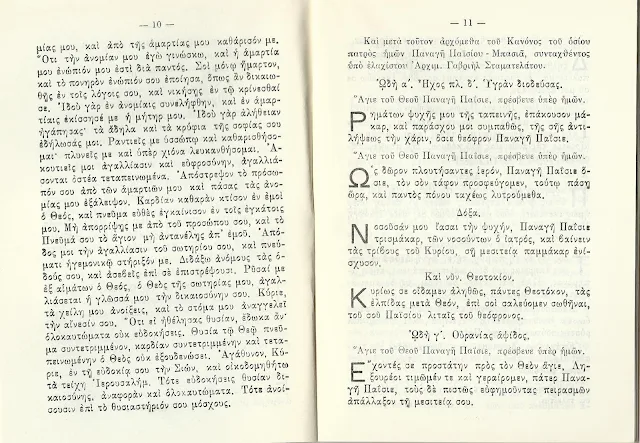 — 10 —
μίας μου, καὶ ἀπὸ τῆς ἁμαρτίας μου καθάρισόν με.
Ὅτι τὴν ἀνομίαν μου ἐγὼ γινώσκω, καὶ ἡ ἁμαρτία
μου ἐνώπιόν μου ἐστὶ διὰ παντός. Σοὶ μόνῳ ἥμαρτον,
καὶ τὸ πονηρὸν ἐνώπιόν σου ἐποίησα, ὅπως ἂν δικαιω-
θῇς ἐν τοῖς λόγοις σου, καὶ νικήσῃς ἐν τῷ κρίνεσθαί
σε. Ἰδοὺ γὰρ ἐν ἀνομίαις συνελήφθην, καὶ ἐν ἁμαρ-
τίαις ἐκίσσησέ με ἡ μήτηρ μου. Ἰδοὺ γὰρ ἀλήθειαν
ἠγάπησας· τὰ ἄδηλα καὶ τὰ κρύφια τῆς σοφίας σου
ἐδήλωσάς μοι. Ραντιεῖς με ὑσσώπῳ καὶ καθαρισθήσο-
μαι· πλυνεῖς με καὶ ὑπὲρ χιόνα λευκανθήσομαι. Ἀ-
κουτιεῖς μοι ἀγαλλίασιν καὶ εὐφροσύνην, ἀγαλλιά-
σονται ὀστέα τεταπεινωμένα. Ἀπόστρεψον τὸ πρόσω-
πόν σου ἀπὸ τῶν ἁμαρτιῶν μου καὶ πάσας τὰς ἀνο-
μίας μου ἐξάλειψον. Καρδίαν καθαρὰν κτίσον ἐν ἐμοὶ
ὁ Θεός, καὶ πνεῦμα εὐθὲς ἐγκαίνισον ἐν τοῖς ἐγκάτοις
μου. Μὴ ἀπορρίψῃς με ἀπὸ τοῦ προσώπου σου, καὶ τὸ
Πνεῦμά σου τὸ ἅγιον μὴ ἀντανέλῃς ἀπ' ἐμοῦ. Ἀπό-
δος μοι τὴν ἀγαλλίασιν τοῦ σωτηρίου σου, καὶ πνεύ-
ματι ἡγεμονικῷ στήριξόν με. Διδάξω ἀνόμους τὰς ὁ-
δούς σου, καὶ ἀσεβεῖς ἐπὶ σὲ ἐπιστρέψουσι. Ρῦσαί με
ἐξ αἱμάτων ὁ Θεός, ὁ Θεὸς τῆς σωτηρίας μου, ἀγαλ-
λιάσεται ἡ γλῶσσά μου τὴν δικαιοσύνην σου. Κύριε,
τὰ χείλη μου ἀνοίξεις, καὶ τὸ στόμα μου ἀναγγελεῖ
τὴν αἴνεσίν σου. Ὅτι εἰ ἠθέλησας θυσίαν, ἔδωκα ἄν·
ὁλοκαυτώματα οὐκ εὐδοκήσεις. Θυσία τῷ Θεῷ πνεῦ-
μα συντετριμμένον, καρδίαν συντετριμμένην καὶ τετα-
πεινωμένην ὁ Θεὸς οὐκ ἐξουδενώσει. Ἀγάθυνον, Κύ-
ριε, ἐν τῇ εὐδοκίᾳ σου τὴν Σιών, καὶ οἰκοδομηθήτω
τὰ τείχη Ἱερουσαλήμ. Τότε εὐδοκήσεις θυσίαν δι-
καιοσύνης, ἀναφορὰν καὶ ὁλοκαυτώματα. Τότε ἀνοί-
σουσιν ἐπὶ τὸ θυσιαστήριόν σου μόσχους.
— 11 —
Καὶ μετὰ τοῦτον ἀρχόμεθα τοῦ Κανόνος τοῦ ὁσίου
πατρὸς ἡμῶν Παναγῆ Παϊσίου - Μπασιᾶ, συνταχθέντος
ὑπὸ ἐλαχίστου Ἀρχιμ. Γαβριὴλ Σταματελάτου.
ᾨδὴ α΄. Ἦχος πλ. δ΄. Ὑγρὰν διοδεύσας.
Ἅγιε τοῦ Θεοῦ Παναγῆ Παΐσιε, πρέσβευε ὑπὲρ ἡμῶν.
Ρημάτων ψυχῆς μου τῆς ταπεινῆς, ἐπάκουσον μά-
καρ, καὶ παράσχου μοι συμπαθῶς, τῆς σῆς ἀντι-
λήψεως τὴν χάριν, ὅσιε θεόφρον Παναγῆ Παΐσιε.
Ἅγιε τοῦ Θεοῦ Παναγῆ Παΐσιε, πρέσβευε ὑπὲρ ἡμῶν.
Ὡς δῶρον πλουτήσαντες ἱερόν, Παναγῆ Παΐσιε ὅ-
σιε, τὸν σὸν τάφον προσφεύγομεν, τούτῳ πάσῃ
ὥρᾳ, καὶ παντὸς πόνου ταχέως λυτρούμεθα.
Δόξα.
Νοσοῦσάν μου ἴασαι τὴν ψυχήν, Παναγῆ Παΐσιε
τρισμάκαρ, τῶν νοσούντων ὁ ἰατρός, καὶ βαίνειν
τὰς τρίβους τοῦ Κυρίου, σῇ μεσιτείᾳ παμμάκαρ ἐνί-
σχυσον.
Καὶ νῦν. Θεοτοκίον.
Κυρίως σε οἴδαμεν ἀληθῶς, πάντες Θεοτόκον, τὰς
ἐλπίδας μετὰ Θεόν, ἐπὶ σοὶ σαλεύομεν σωθῆναι,
τοῦ σοῦ Παϊσίου λιταῖς τοῦ θεόφρονος.
ᾨδὴ γ΄. Οὐρανίας ἁψῖδος.
Ἅγιε τοῦ Θεοῦ Παναγῆ Παΐσιε, πρέσβευε ὑπὲρ ἡμῶν.
Ἔχοντές σε προστάτην πρὸς τὸν Θεὸν ἅγιε, Λη-
ξουρέοι τιμῶμέν τε καὶ γεραίρομεν, πάτερ Πανα-
γῆ Παΐσιε, τοὺς δὲ πιστῶς εὐφημοῦντας πειρασμῶν
ἀπάλλαξον τῇ μεσιτείᾳ σου.